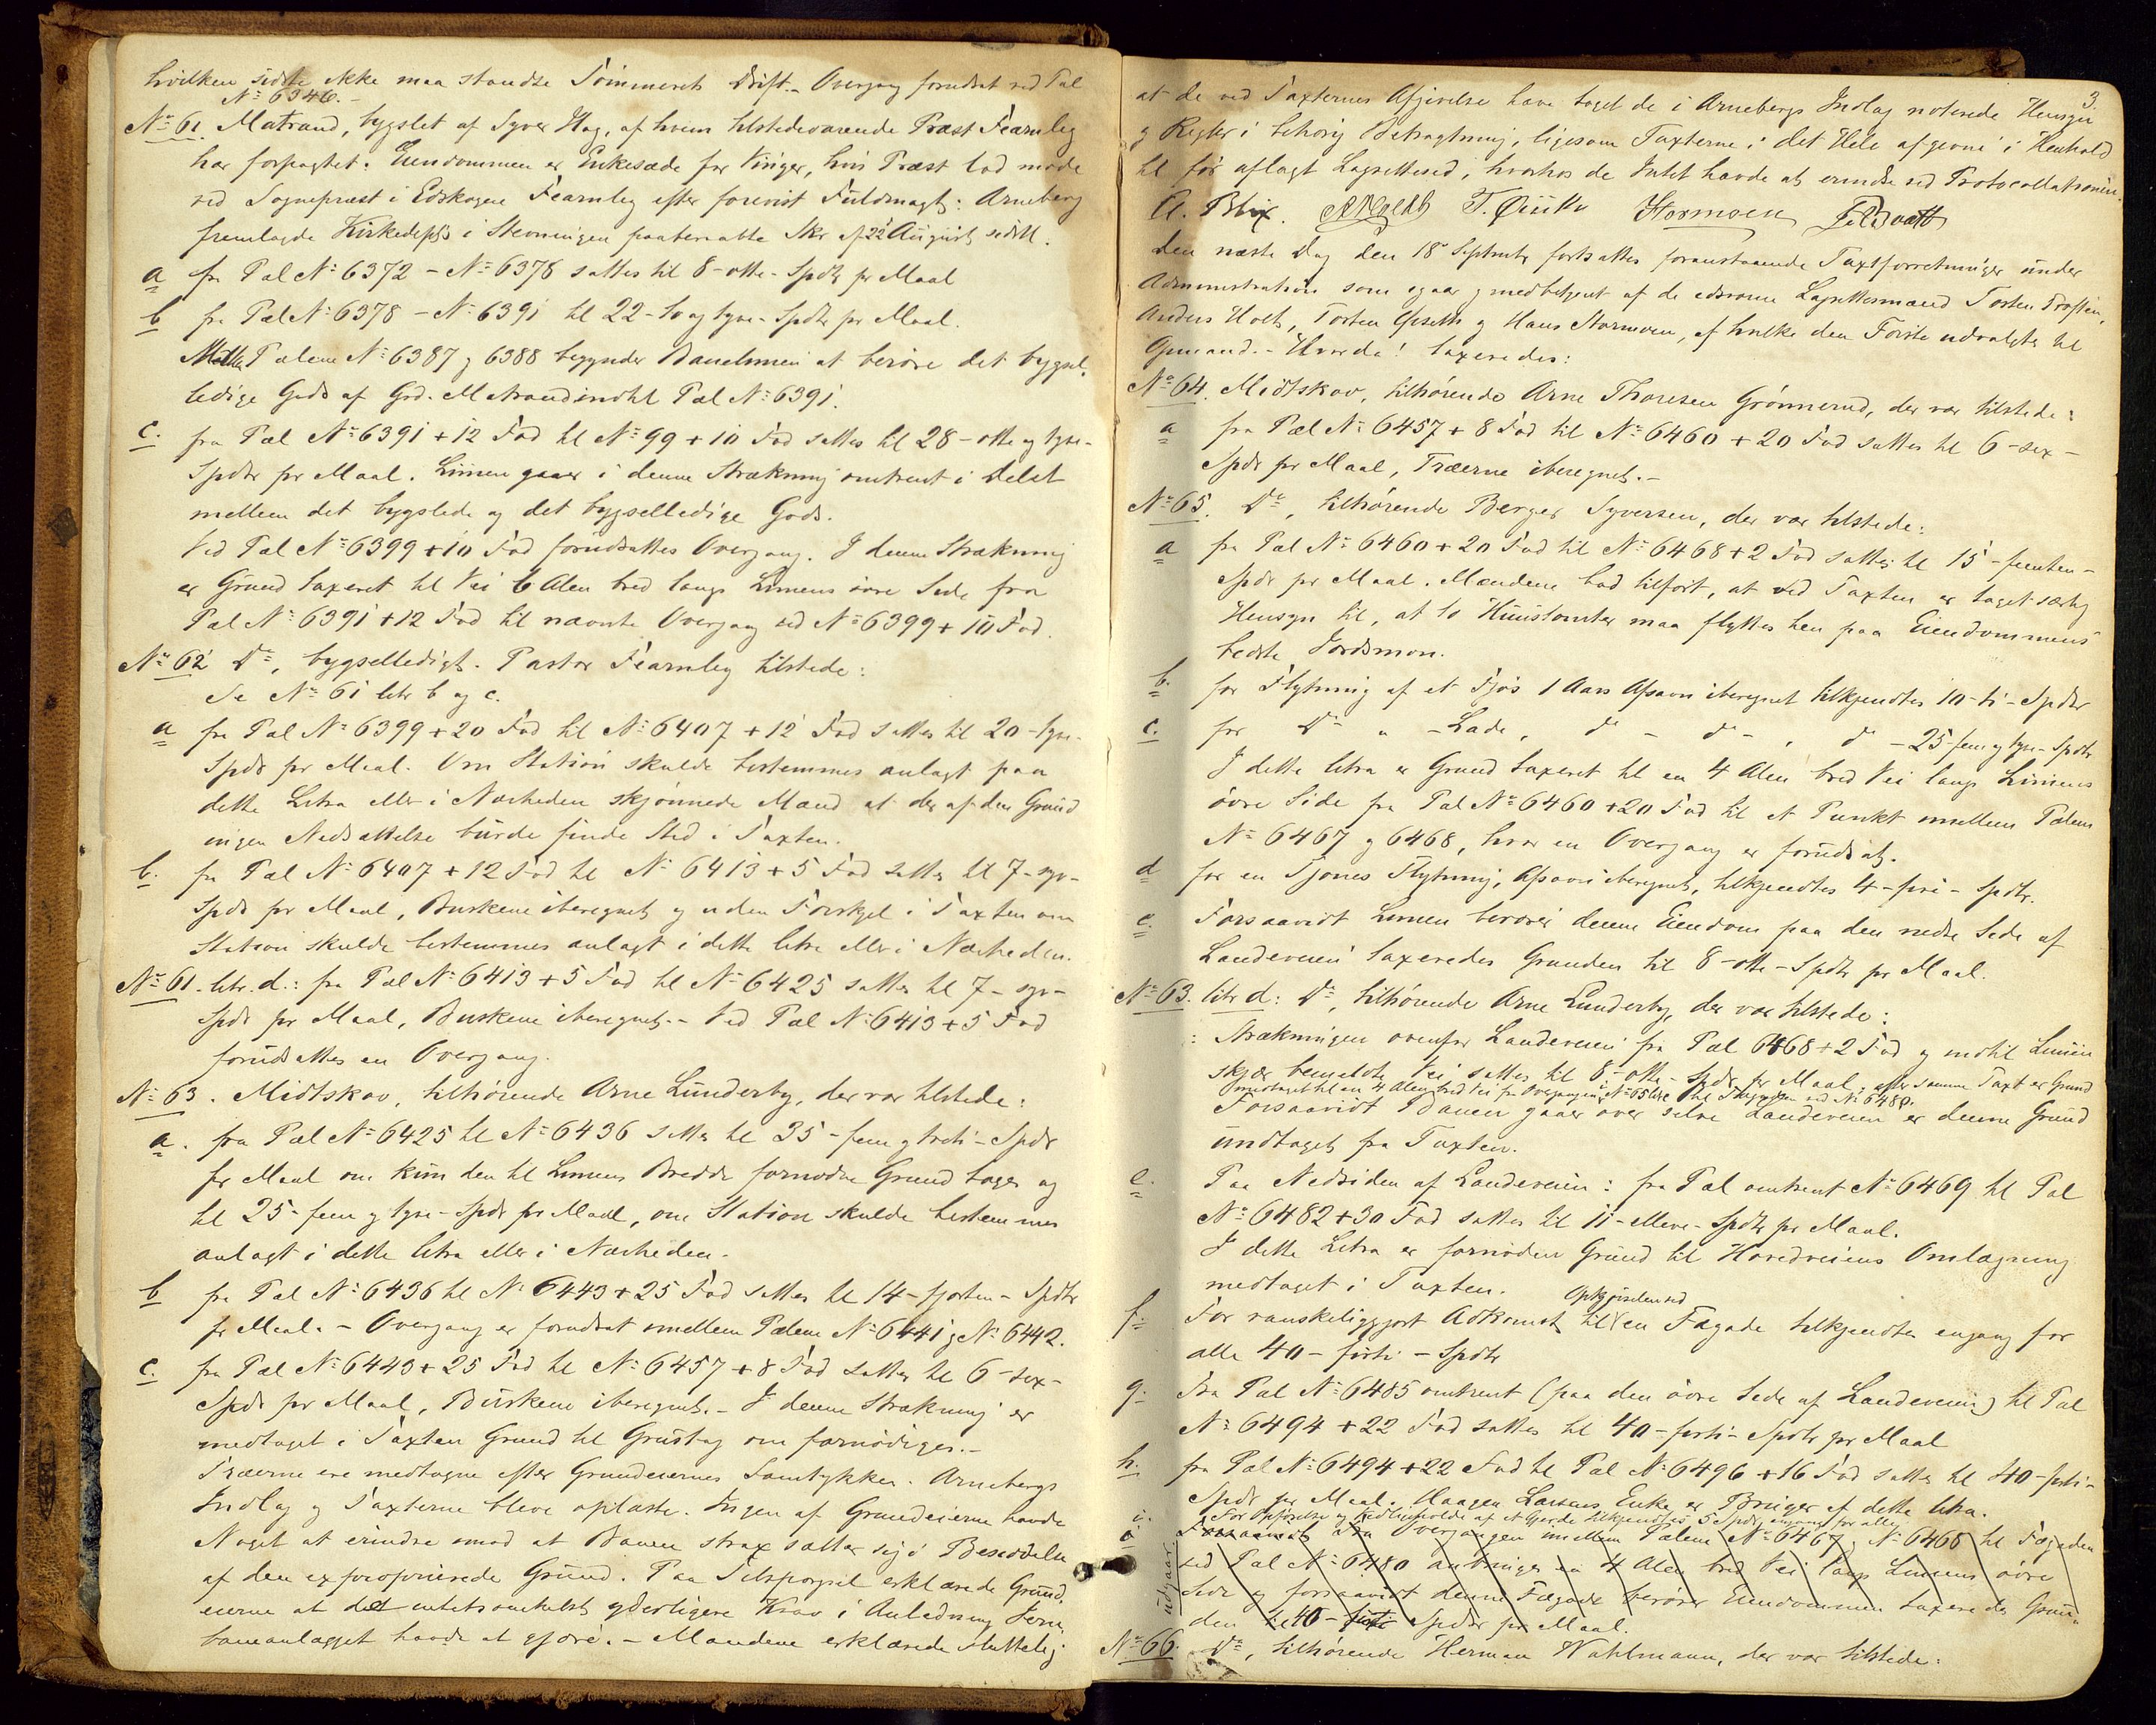 hvilken sidste ikke maa standse Tømmerets Drift. – Overgang forudsat ved Pæl
N: 6346. –
No 61. Matrand, bygslet af Syver Hag, af hvem tilstedeværende Præst Fearnley
har forpagtet. Eiendommen er Enkesæde for Vinger, hvis Præst lod møde
ved Sognepræst i Edskogen Fearnley efter forevist Fuldmagt: Arneberg
fremlagde Kirkedeptss i Stevningen paaberaabte Skr af 22 August sidstl.
a fra Pæl No 6372 – No 6378 sattes til 8 – otte – Spdlr pr Maal
b fra Pæl No 6378 – No 6391 til 22 – to og tyve – Spdlr pr Maal.
Mellem Pælene No 6387 og 6388 begynder Banelinien at berøre det bygsel-
ledige Gods af Grd. Matrand indtil Pæl No 6391.
c. fra Pæl No 6391 + 12 Fod til No 99 + 10 Fod sattes til 28 – otte og tyve –
Spdlr pr Maal. Linien gaaer i denne Strækning omtrent i Delet
mellem det bygslede og det bygselledige Gods.
Ved Pæl No 6399 + 10 Fod forudsattes Overgang. I denne Strækning
er Grund taxeret til Vei 6 Alen bred langs Liniens øvre Side fra
Pæl No 6391 + 12 Fod til nævnte Overgang ved No 6399 + 10 Fod.
No 62 Do, bygselledigt. Pastor Fearnley tilstede:
Se No 61 litr b og c.
a fra Pæl No 6399 + 20 Fod til No 6407 + 12 Fod sattes til 20 – tyve –
Spdlr pr Maal. Om Station skulde bestemmes anlagt paa
dette Litra eller i Nærheden skjønnede Mænd at der af den Grund
ingen Nedsættelse burde finde Sted i Taxten.
b. fra Pæl No 6407 + 12 Fod til No 6413 + 5 Fod sattes til 7 – syv –
Spdlr pr Maal, Buskene iberegnet og uden Forskjel i Taxten om
Station skulde bestemmes anlagt i dette litra eller i Nærheden.
No 61. litr. d.: fra Pæl No 6413 + 5 Fod til No 6425 sattes til 7 – syv –
Spdlr pr Maal, Buskene iberegnet. – Ved Pæl No 6413 + 5 Fod
forudsattes en Overgang.
No 63. Midtskov, tilhørende Arne Lunderby, der var tilstede:
a. fra Pæl No 6425 til No 6436 sattes til 35 – fem og treti – Spdlr
pr Maal om kun den til Liniens Bredde fornødne Grund tages og
til 25 – fem og tyve – Spdlr pr Maal, om Station skulde bestemmes
anlagt i dette litra eller i Nærheden.
b fra Pæl No 6436 til No 6443 + 25 Fod sattes til 14 – fjorten – Spdlr
pr Maal. – Overgang er forudsat mellem Pælene No 6441 og No 6442.
c. fra Pæl No 6443 + 25 Fod til No 6457 + 8 Fod sattes til 6 – sex –
Spdlr pr Maal, Buskene iberegnet. – I denne Strækning er
medtaget i Taxten Grund til Grustag om fornødiges. –
Træerne ere medtagne efter Grundeiernes Samtykke. Arnebergs
Indlæg og Taxterne bleve oplæste. Ingen af Grundeierne havde
Noget at erindre imod at Banen strax sætter sig i Besiddelse
af den exproprierede Grund. Paa Tilspørgsel erklærede Grund-
eierne at de intetsomhelst yderligere Krav i Anledning Jern-
baneanlægget havde at gjøre. – Mændene erklærede sluttelig
3.
at de ved Taxternes Afgivelse have taget de i Arnebergs Indlæg noterede Hensyn
og Regler i behørig Betragtning, ligesom Taxterne i det Hele afgivne i Henhold
til før aflagt Lagrettesed, hvorhos de Intet havde at erindre ved Protocollationen.
A. Blix. T. Hormoen
den næste Dag den 18de Septembr fortsattes foranstaaende Taxtforretninger under
Administration som igaar og medbetjent af de edsvorne Lagrettesmænd Torsten
Anders Holt, Torsten Gjseth og Hans Stormoen, af hvilke den Første udvalgtes til
Opmand. – Hvorda! taxeredes:
No 64. Midtskov, tilhørende Arne Thoresen Grønnerud, der var tilstede:
a fra Pæl No 6457 + 8 Fod til No 6460 + 20 Fod sattes til 6 – sex –
Spdlr pr Maal, Træerne iberegnet. –
No 65. Do, tilhørende Berger Syversen, der var tilstede:
a fra Pæl No 6460 + 20 Fod til No 6468 + 2 Fod sattes til 15 – femten –
Spdlr pr Maal. Mændene bad tilført, at ved Taxten er taget særlig
Hensyn til, at to Huustomter maa flyttes hen paa Eiendommens
bedste Jordsmon.
b. for Flytning af et Fjøs 1 Aars Afsavn iberegnet tilkjendtes 10 – ti – Spdlr
c. for Do „ – Lade, do – do – , do – 25 – fem og tyve – Spdlr
I dette litra er Grund taxeret til en 4 Alen bred Vei langs Liniens
øvre Side fra Pæl No 6460 + 20 Fod til et Punkt mellem Pælene
No 6467 og 6468, hvor en Overgang er forudsat.
d for en Tjones Flytning, Afsavn iberegnet, tilkjendtes 4 – fire – Spdlr.
e. Forsaavidt Linien berører denne Eiendom paa den nedre Side af
Landeveien taxeredes Grunden til 8 – otte – Spdlr pr Maal.
No 63. litr d: Do, tilhørende Arne Lunderby, der var tilstede:
: Strækningen ovenfor Landeveien fra Pæl 6468 + 2 Fod og indtil Linien
skjær bemeldte Vei sattes til 8 – otte – Spdlr pr Maal; efter samme Taxt er Grund
medtaget til en 4 Alen bred Vei fra Overgangen i No 65 litr c til Fægaden ved No 6480.
Forsaavidt Banen gaaer over selve Landeveien er denne Grund
undtaget fra Taxten.
e. Paa Nedsiden af Landeveien: fra Pæl omtrent No 6469 til Pæl
No 6482 + 30 Fod sattes til 11 – elleve – Spdlr pr Maal.
I dette Litra er fornøden Grund til Hovedveiens Omlægning
medtaget i Taxten.
Opkjørselen ved
f For vanskeliggjort Adkomst til en Fægade tilkjendtes engang for
alle 40 –førti – Spdlr
g. Fra Pæl No 6485 omtrent (paa den øvre Side af Landeveien) til Pæl
No 6494 + 22 Fod sattes til 40 – førti – Spdlr pr Maal
h. fra Pæl No 6494 + 22 Fod til Pæl No 6496 + 16 Fod sattes til 40 – førti –
Spdlr pr Maal. Haagen Larsens Enke er Bruger af dette litra.
i. For Opførelse og Vedligeholde af et Gjerde tilkjendtes 5 Spdlr engang for alle
i Forsaavidt fra Overgangen mellem Pælene No 6467 og No 6468 til Fægaden
ved Pæl No 6480 anbringes en 4 Alen bred Vei langs Liniens øvre
Side og forsaavidt denne Fægade berører Eiendommen taxeredes Grun-
den til 40 – førti – Spdlr pr Maal.
udgaar.
No 66. Do, tilhørende Herman Wahlmann, der var tilstede: